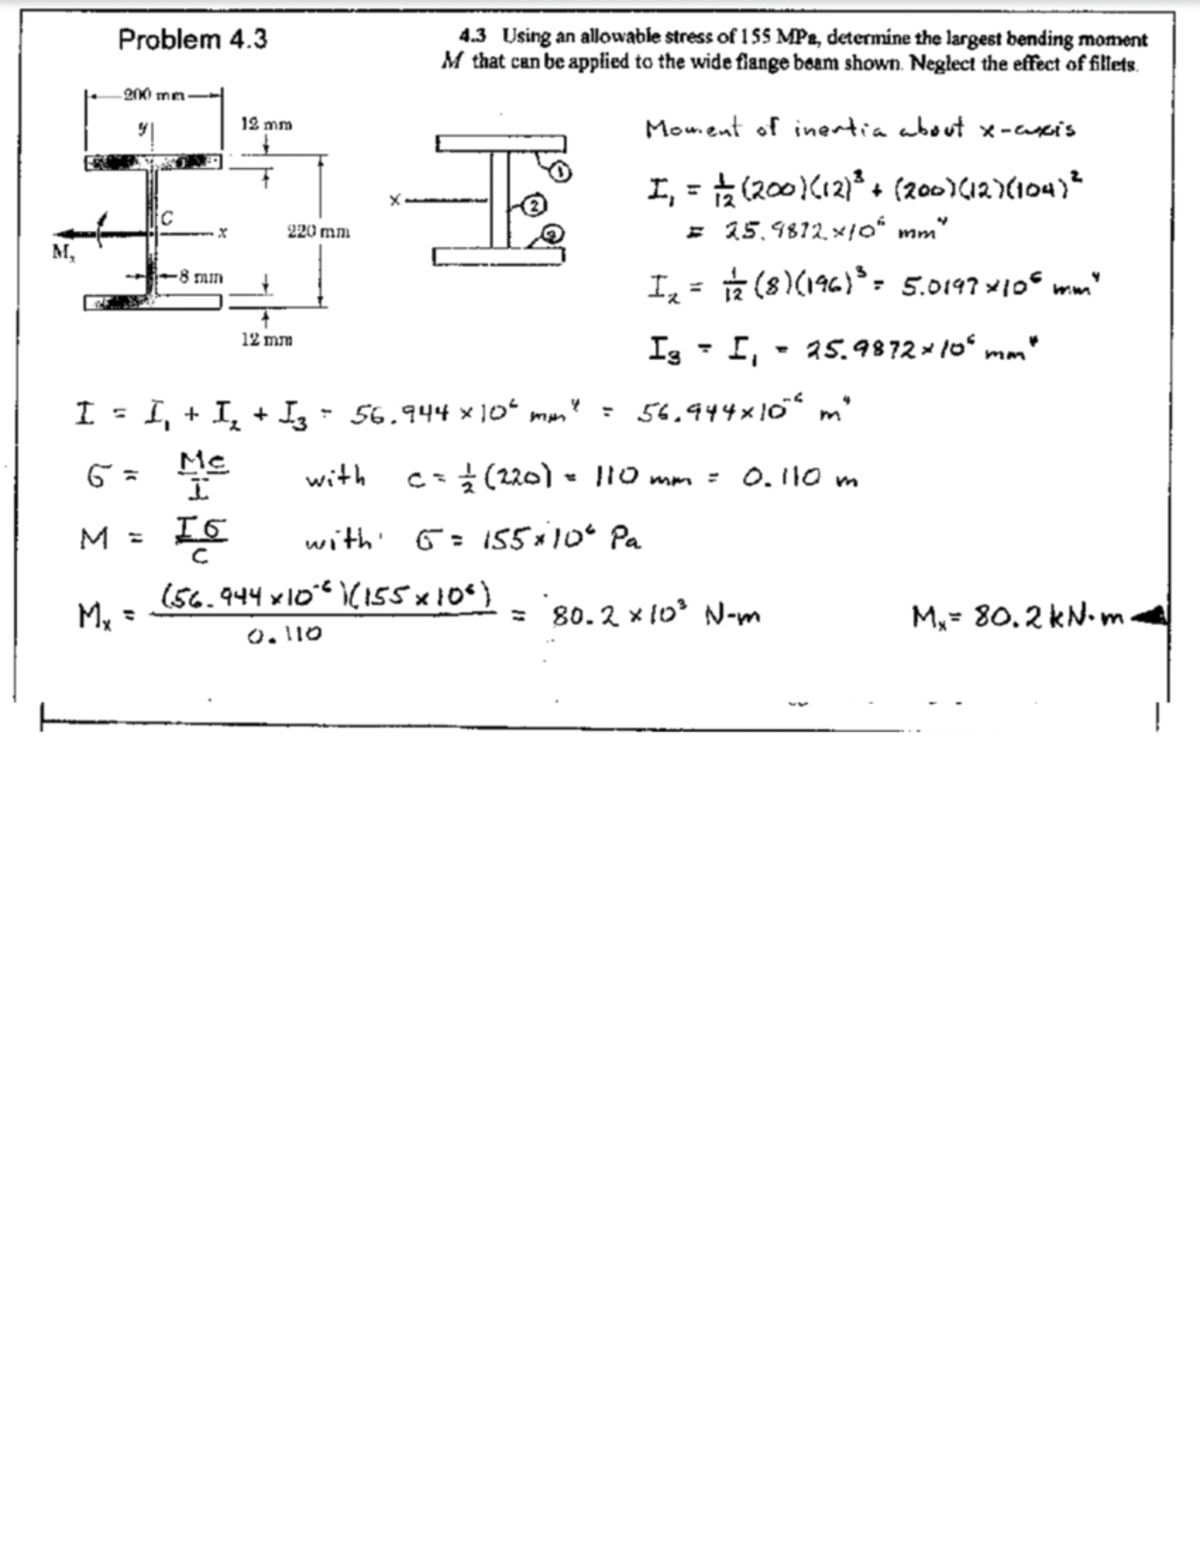 Problem 4.3
4.3 Using an allowable stress of 155 MPa, determine the largest bending moment
M that can be applied to the wide flange beam shown. Neglect the effect of fillets.
200 mm
y
12 mm
C
x
220 mm
Mₓ
8 mm
12 mm
x
①
②
③
Moment of inertia about x-axis
I₁ = 1/12 (200)(12)³ + (200)(12)(104)²
= 25.9872 × 10⁶ mm⁴
I₂ = 1/12 (8)(196)³ = 5.0197 × 10⁶ mm⁴
I₃ = I₁ = 25.9872 × 10⁶ mm⁴
I = I₁ + I₂ + I₃ = 56.944 × 10⁶ mm⁴ = 56.944 × 10⁻⁶ m⁴
σ = Mc/I with c = 1/2 (220) = 110 mm = 0.110 m
M = Iσ/c with σ = 155 × 10⁶ Pa
Mₓ = (56.944 × 10⁻⁶)(155 × 10⁶)/0.110 = 80.2 × 10³ N-m
Mₓ = 80.2 kN·m